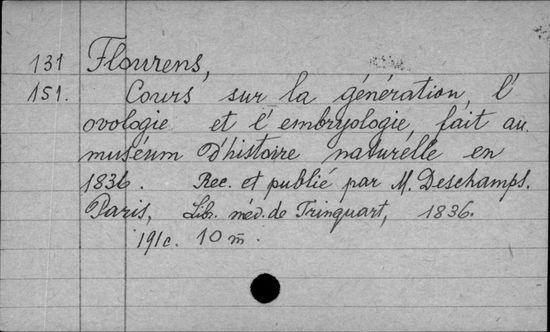 131 Flourens,
151. Cours sur la génération, l'
ovologie et l'embryologie, fait au
muséum d'histoire naturelle en
1836. Rec. et publié par M. Deschamps.
Paris, Lib. méd. de Trinquart, 1836.
191c. 10 m̅.